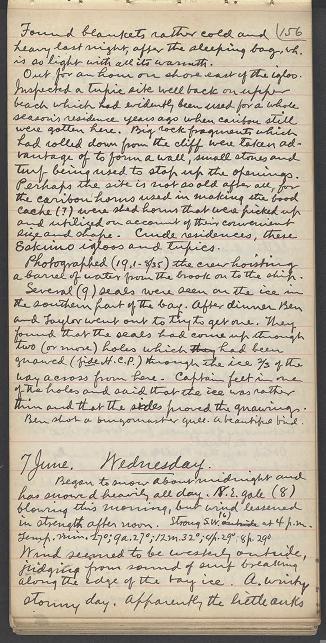 156
Found blankets rather cold and
heavy last night, after the sleeping bag, wh.
is as light with all its warmth.
Out for an hour on shore east of the igloo.
Inspected a tupic site well back on upper
beach which had evidently been used for a whole
season's residence years ago when caribou still
were gotten here. Big rock fragments which
had rolled down from the cliff were taken ad-
vantage of to form a wall, small stones and
turf being used to stop up the openings.
Perhaps the site is not as old after all, for
the caribou horns used in making the food
cache (?) were shed horns that were picked up
and utilized on account of their convenient
size and shape. Crude residences, these
Eskimo igloos and tupics.
Photographed (19, 1-8/35) the crew hoisting
a barrel of water from the brook on to the ship.
Several (9) seals were seen on the ice in
the southern part of the bay. After dinner Ben
and Taylor went out to try to get one. They
found that the seals had come up through
two (or more) holes which they had been
gnawed (fide H.C.P.) through the ice 2/3 of the
way across from here. Captain felt in one
of the holes and said that the ice was rather
thin and that the sides proved the gnawings.
Ben shot a burgomaster gull. A beautiful bird.
7 June. Wednesday.
Began to snow about midnight and
has snowed heavily all day. N.E. gale (8)
blowing this morning, but wind lessened
in strength after noon. Strong S.W. (6) at 4 p.m.
Temp. min. 27°; 9a. 27°; 12m. 32°; 4p. 29° 8p. 29°
Wind seemed to be westerly outside,
judging from sound of surf breaking
along the edge of the bay ice. A windy
stormy day. Apparently the little auks